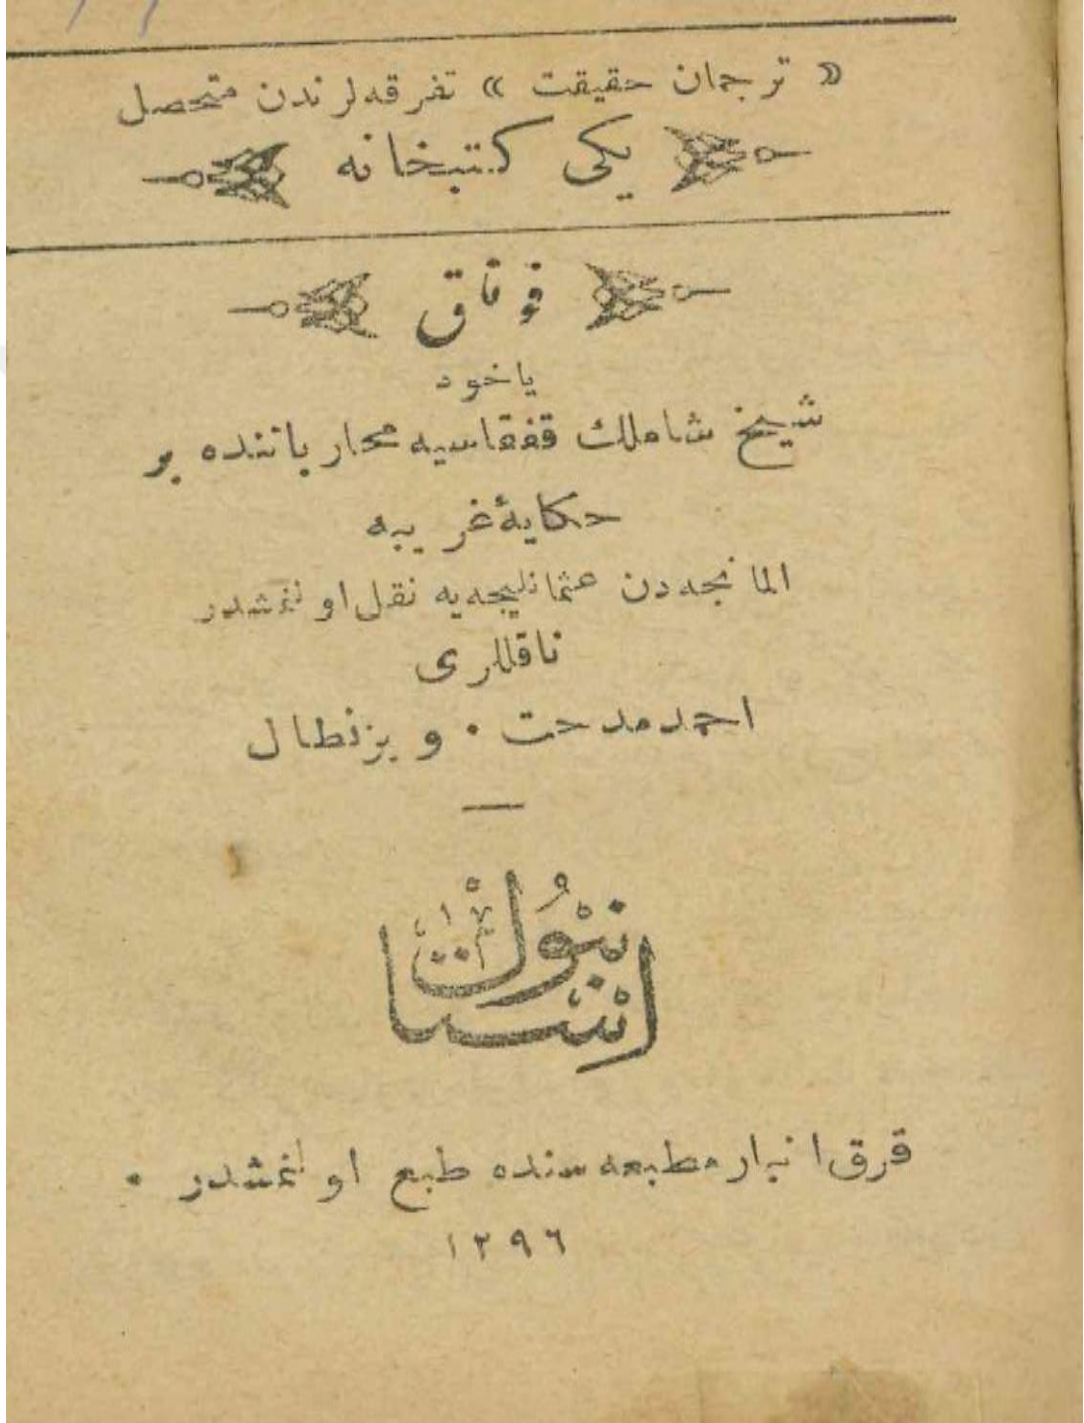 « ترجمان حقیقت » تفرقه‌لرندن متحصل
یکی کتبخانه
قوناق
یاخود
شیخ شاملك قفقاسیه محارباتنده بر
حکایهٔ غریبه
المانجه‌دن عثمانلیجه‌یه نقل اولنمشدر
ناقللری
احمد مدحت . ویزنطال
استانبول
قرق انبار مطبعه‌سنده طبع اولنمشدر .
١٢٩٦